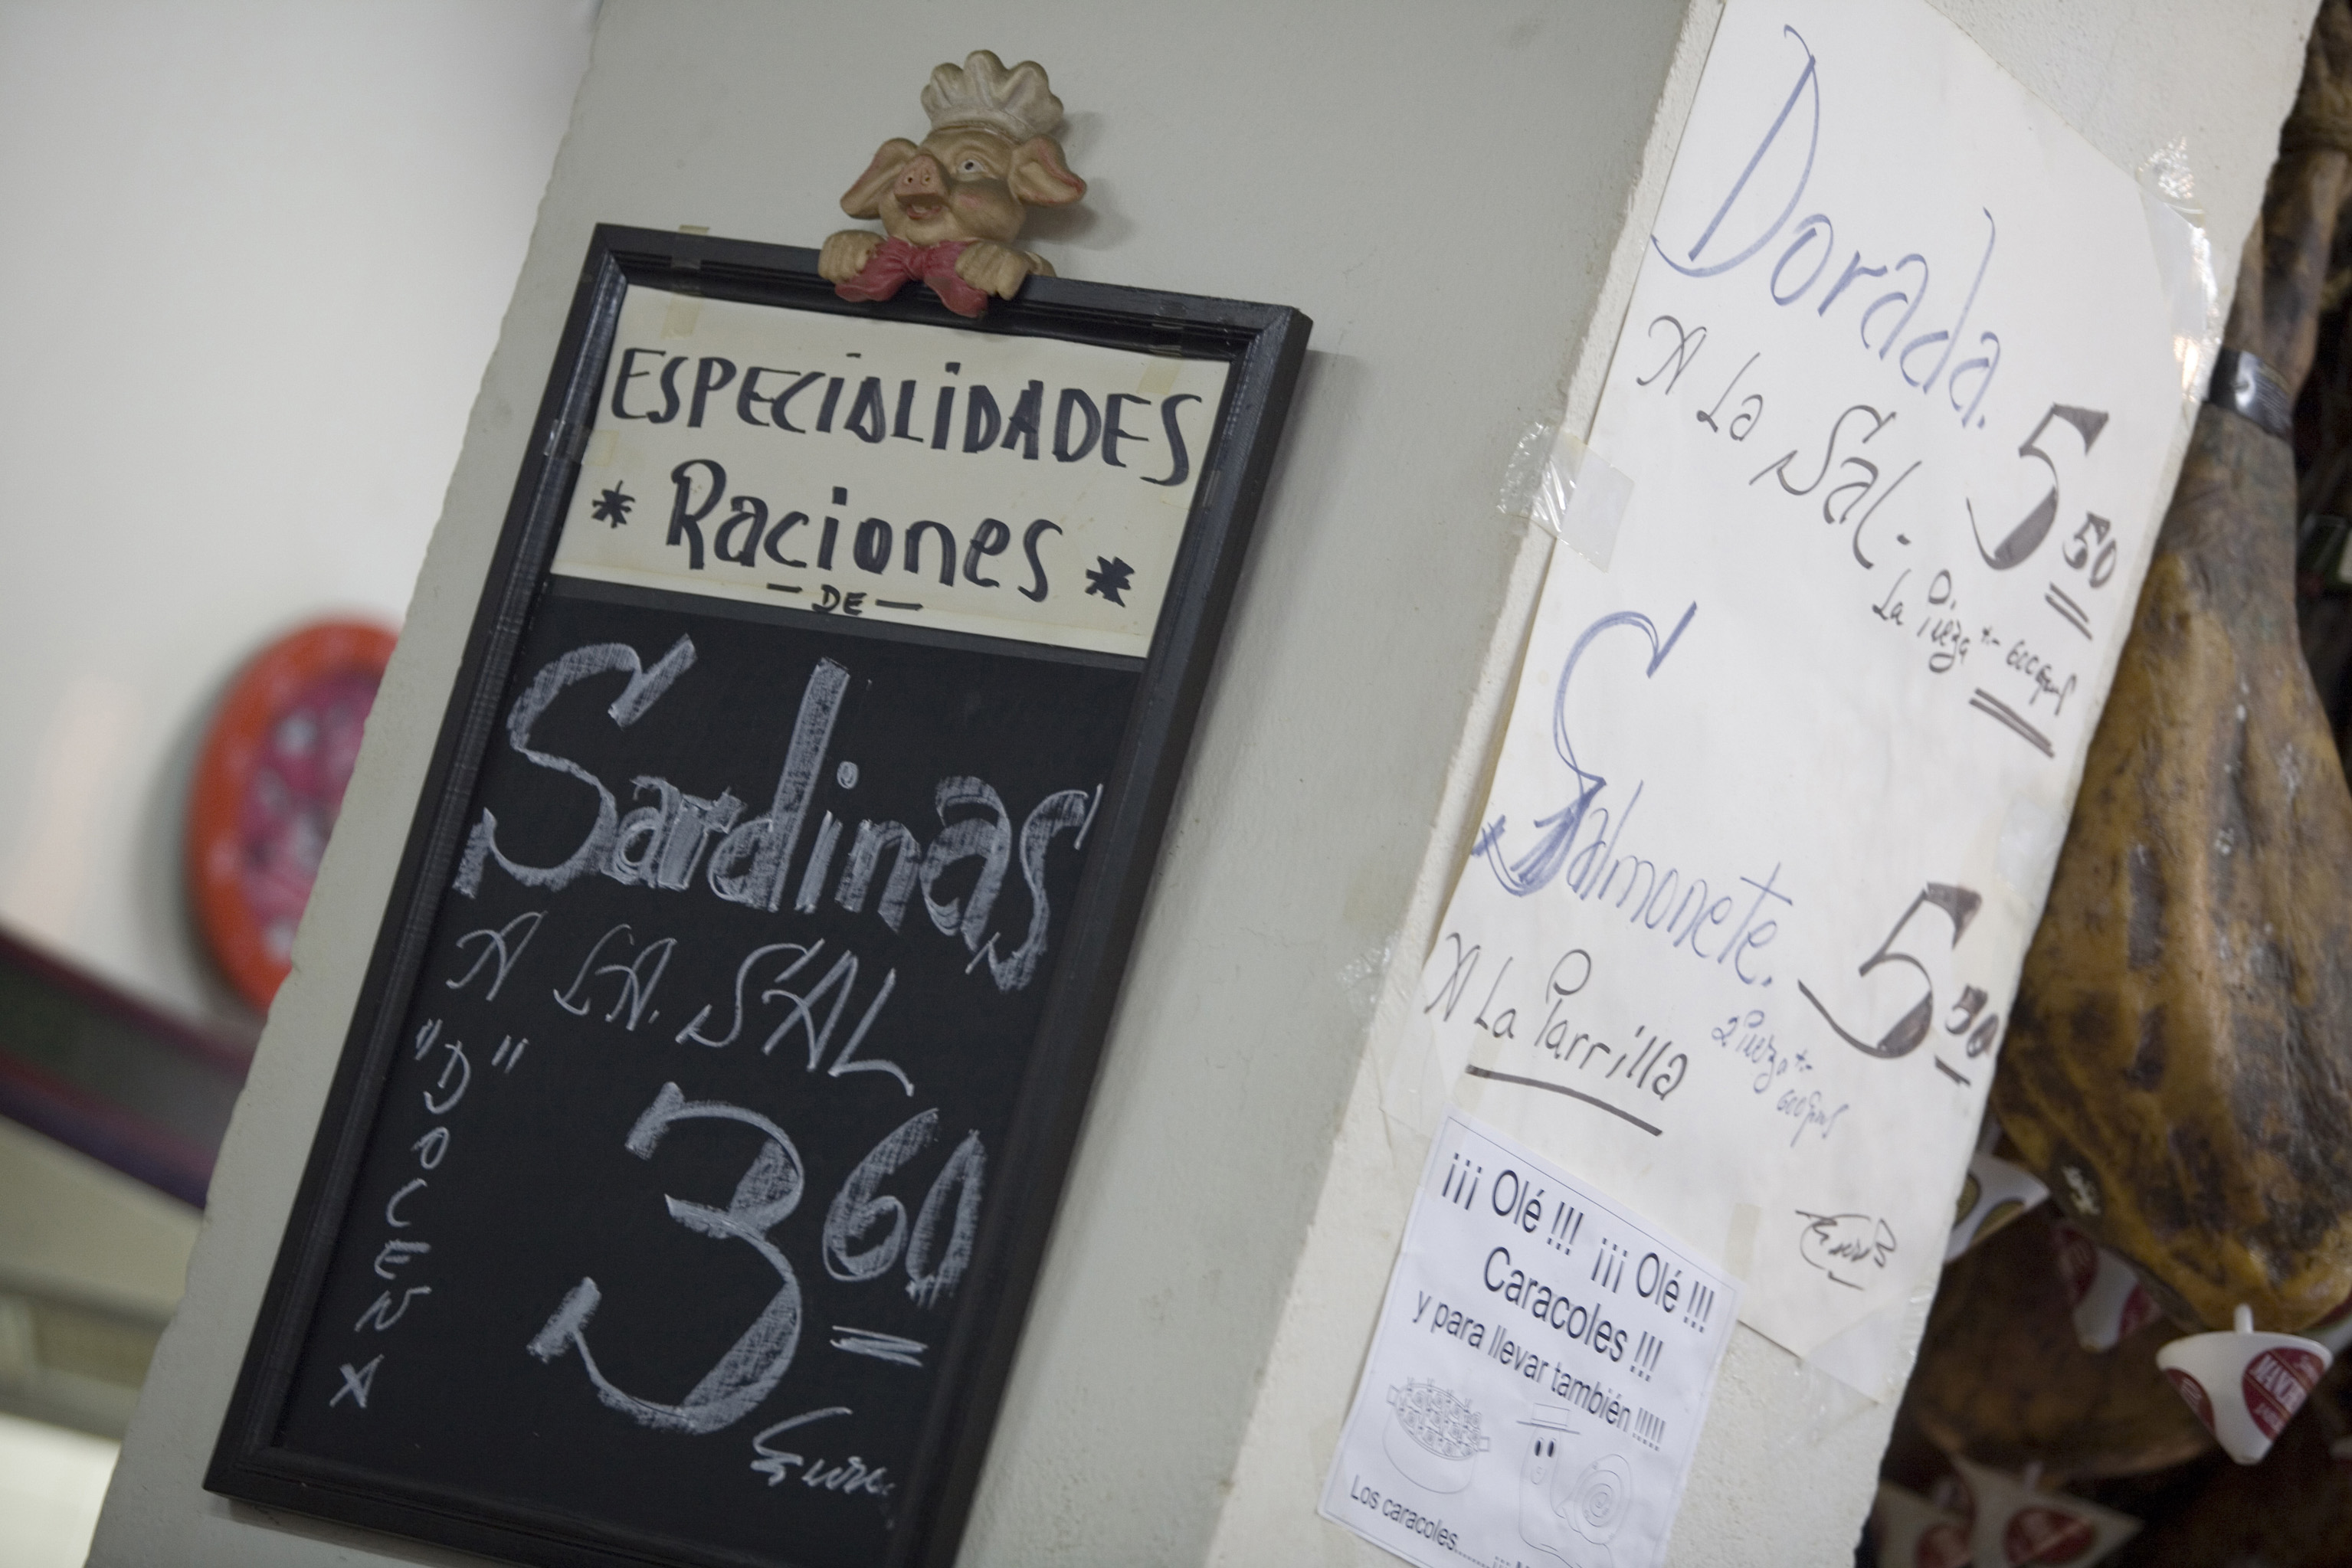 ESPECIALIDADES
* Raciones *
- DE -
Sardinas
A LA SAL
"DOCENA"
3 60
Euros
Dorada.
A La Sal.
5 50
La Pieza +- 600 grms
Salmonete.
5 50
A La Parrilla
2 Pieza +- 600 grms
Euros
¡¡¡ Olé !!! ¡¡¡ Olé !!!
Caracoles !!!
y para llevar también !!!!!
Los caracoles